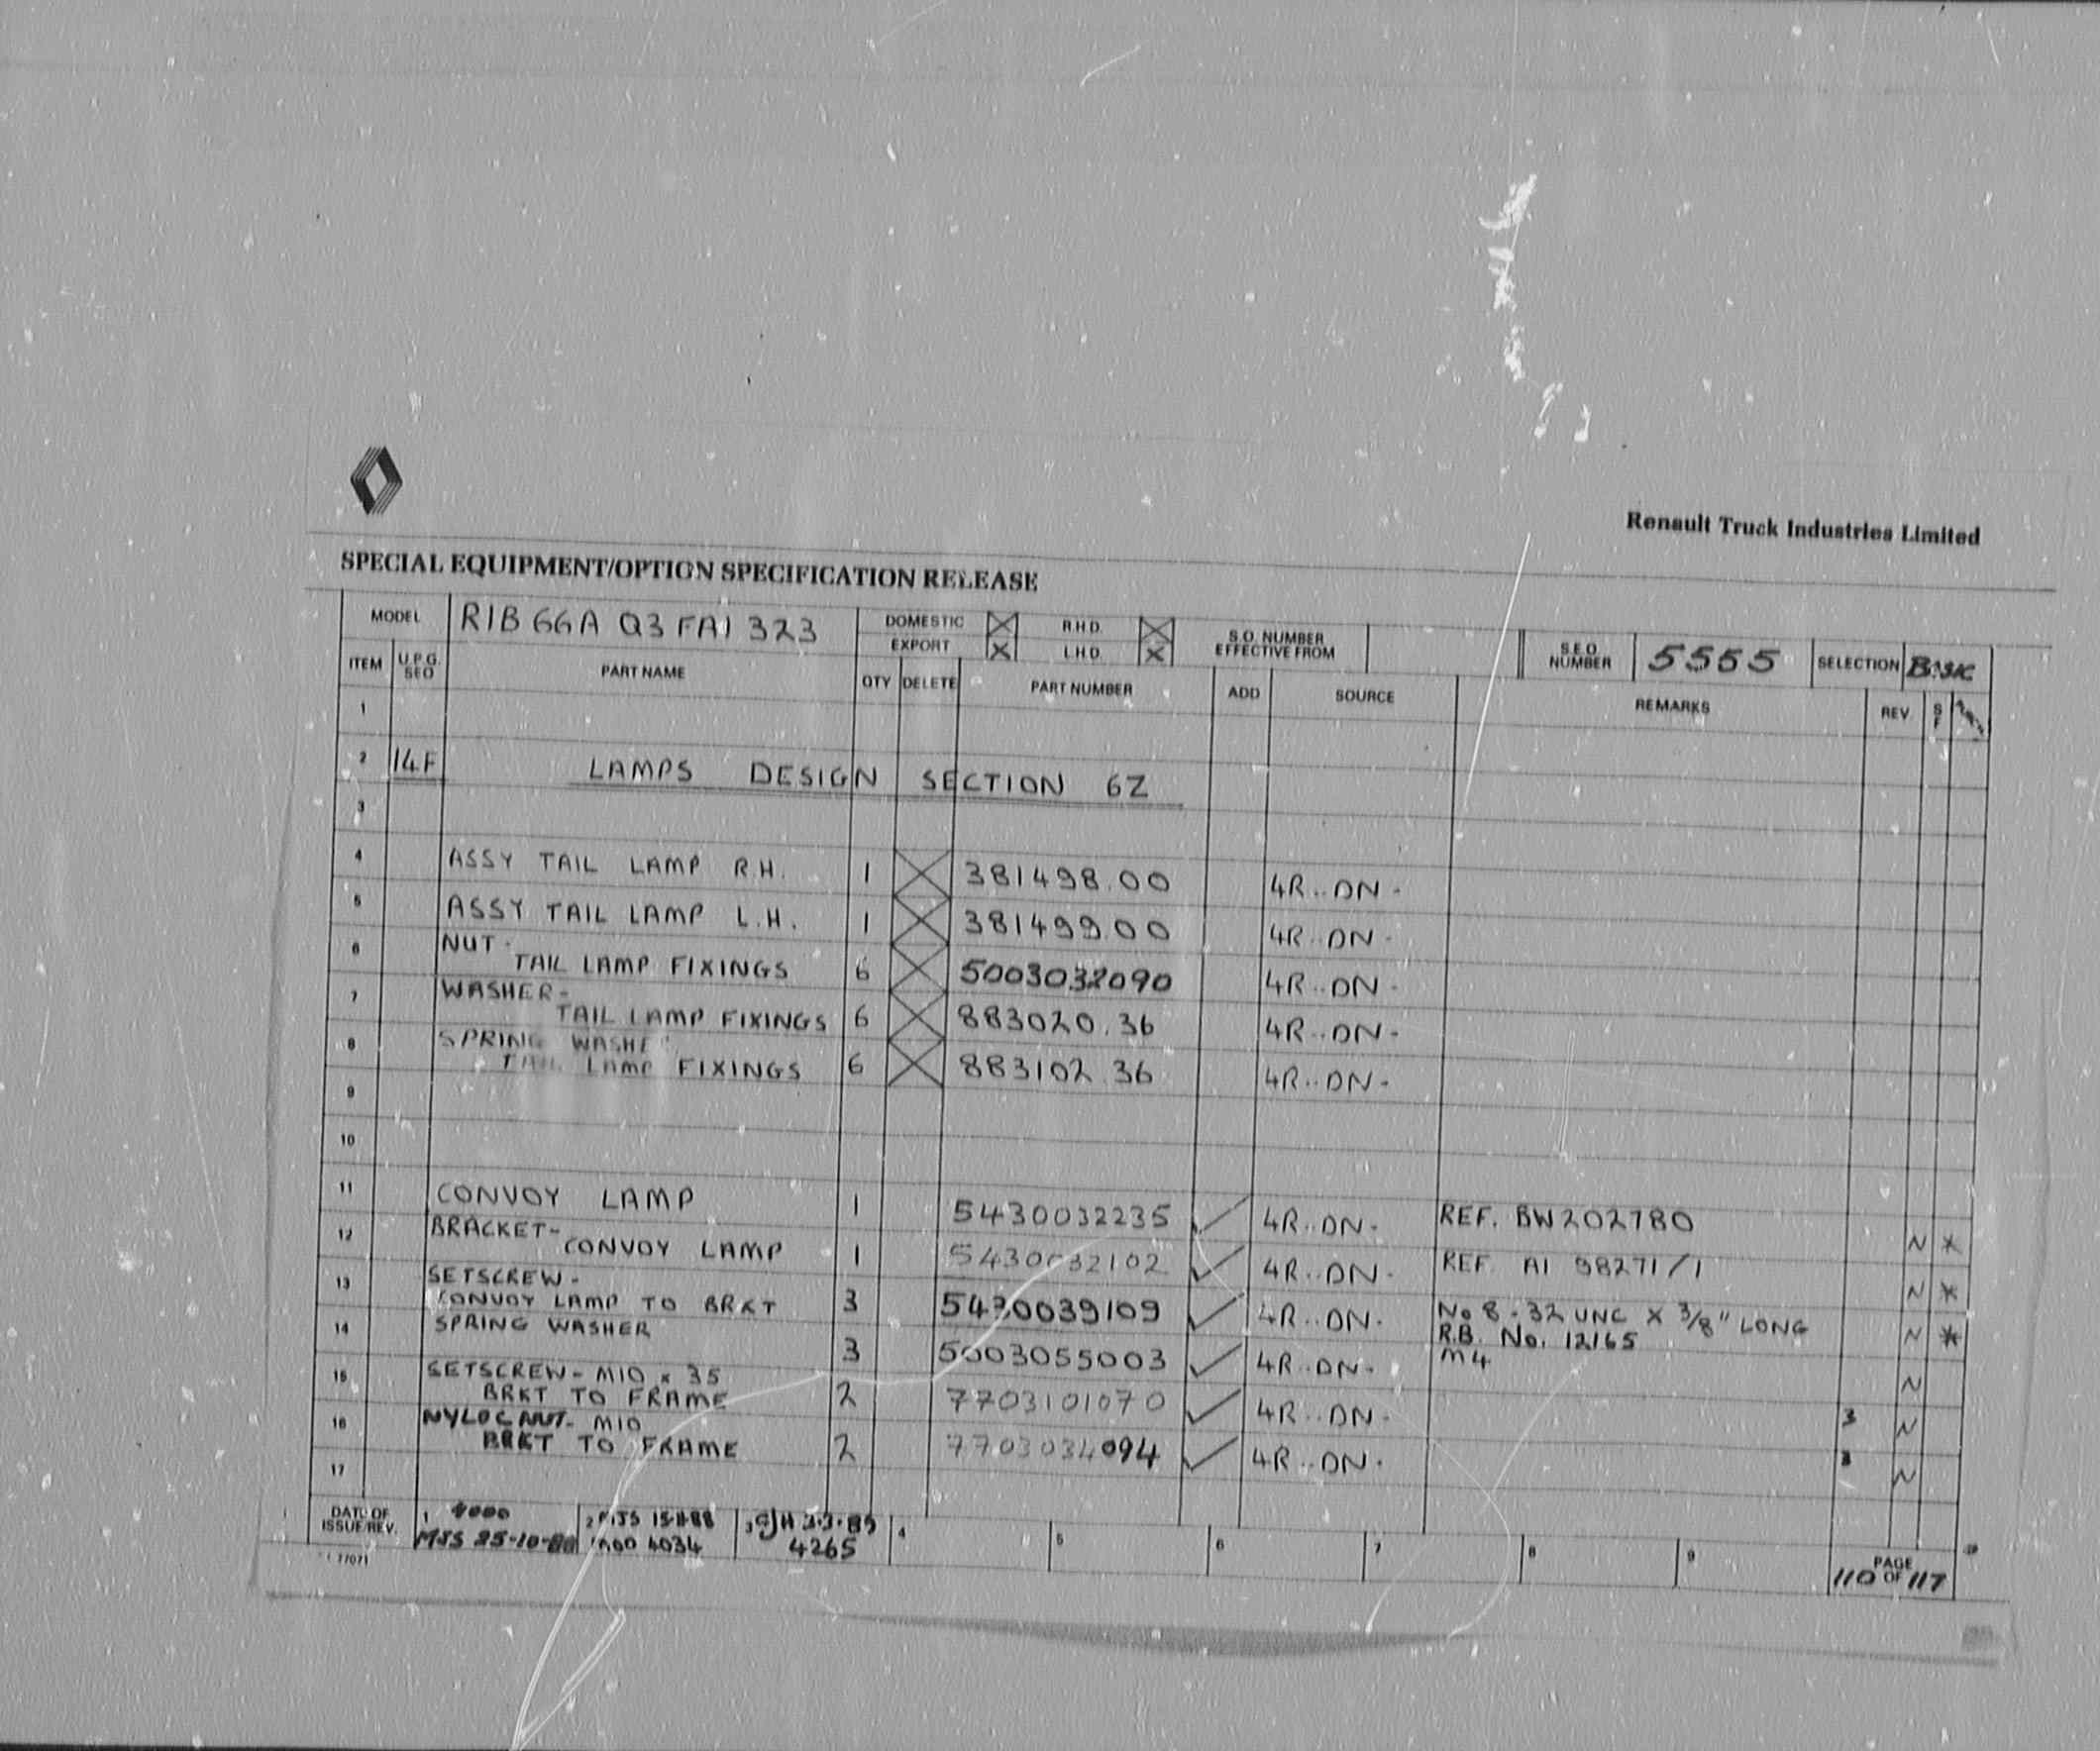 Renault Truck Industries Limited
SPECIAL EQUIPMENT/OPTION SPECIFICATION RELEASE
MODEL R1B 66A Q3 FA1 323 DOMESTIC X R.H.D. X S.O. NUMBER EFFECTIVE FROM S.E.O. NUMBER 5555 SELECTION BASIC
EXPORT X L.H.D. X
ITEM U.P.G. SEQ PART NAME QTY DELETE PART NUMBER ADD SOURCE REMARKS REV S F
1
2 14F LAMPS DESIGN SECTION 6Z
3
4 ASSY TAIL LAMP R.H. 1 X 381498.00 4R..DN.
5 ASSY TAIL LAMP L.H. 1 X 381499.00 4R..DN.
6 NUT-
TAIL LAMP FIXINGS 6 X 5003032090 4R..DN.
7 WASHER-
TAIL LAMP FIXINGS 6 X 883020.36 4R..DN.
8 SPRING WASHE
TAIL LAMP FIXINGS 6 X 883102.36 4R..DN.
9
10
11 CONVOY LAMP 1 5430032235 ✓ 4R..DN. REF. BW202780 N *
12 BRACKET-
CONVOY LAMP 1 5430032102 ✓ 4R..DN. REF. A1 98271/1 N *
13 SETSCREW-
CONVOY LAMP TO BRKT 3 5430039109 ✓ 4R..DN. No 8-32 UNC X 3/8" LONG N *
R.B. No. 12165
14 SPRING WASHER 3 5003055003 ✓ 4R..DN. M4 N
15 SETSCREW-M10 x 35
BRKT TO FRAME 2 7703101070 ✓ 4R..DN. 3 N
16 NYLOC NUT-M10
BRKT TO FRAME 2 7703034094 ✓ 4R..DN. 3 N
17
DATE OF ISSUE/REV. 1 4000 2 MJS 15-11-88 3 4 5 6 7 8 9 PAGE
MJS 25-10-88 4034 4265 110 OF 117
77071